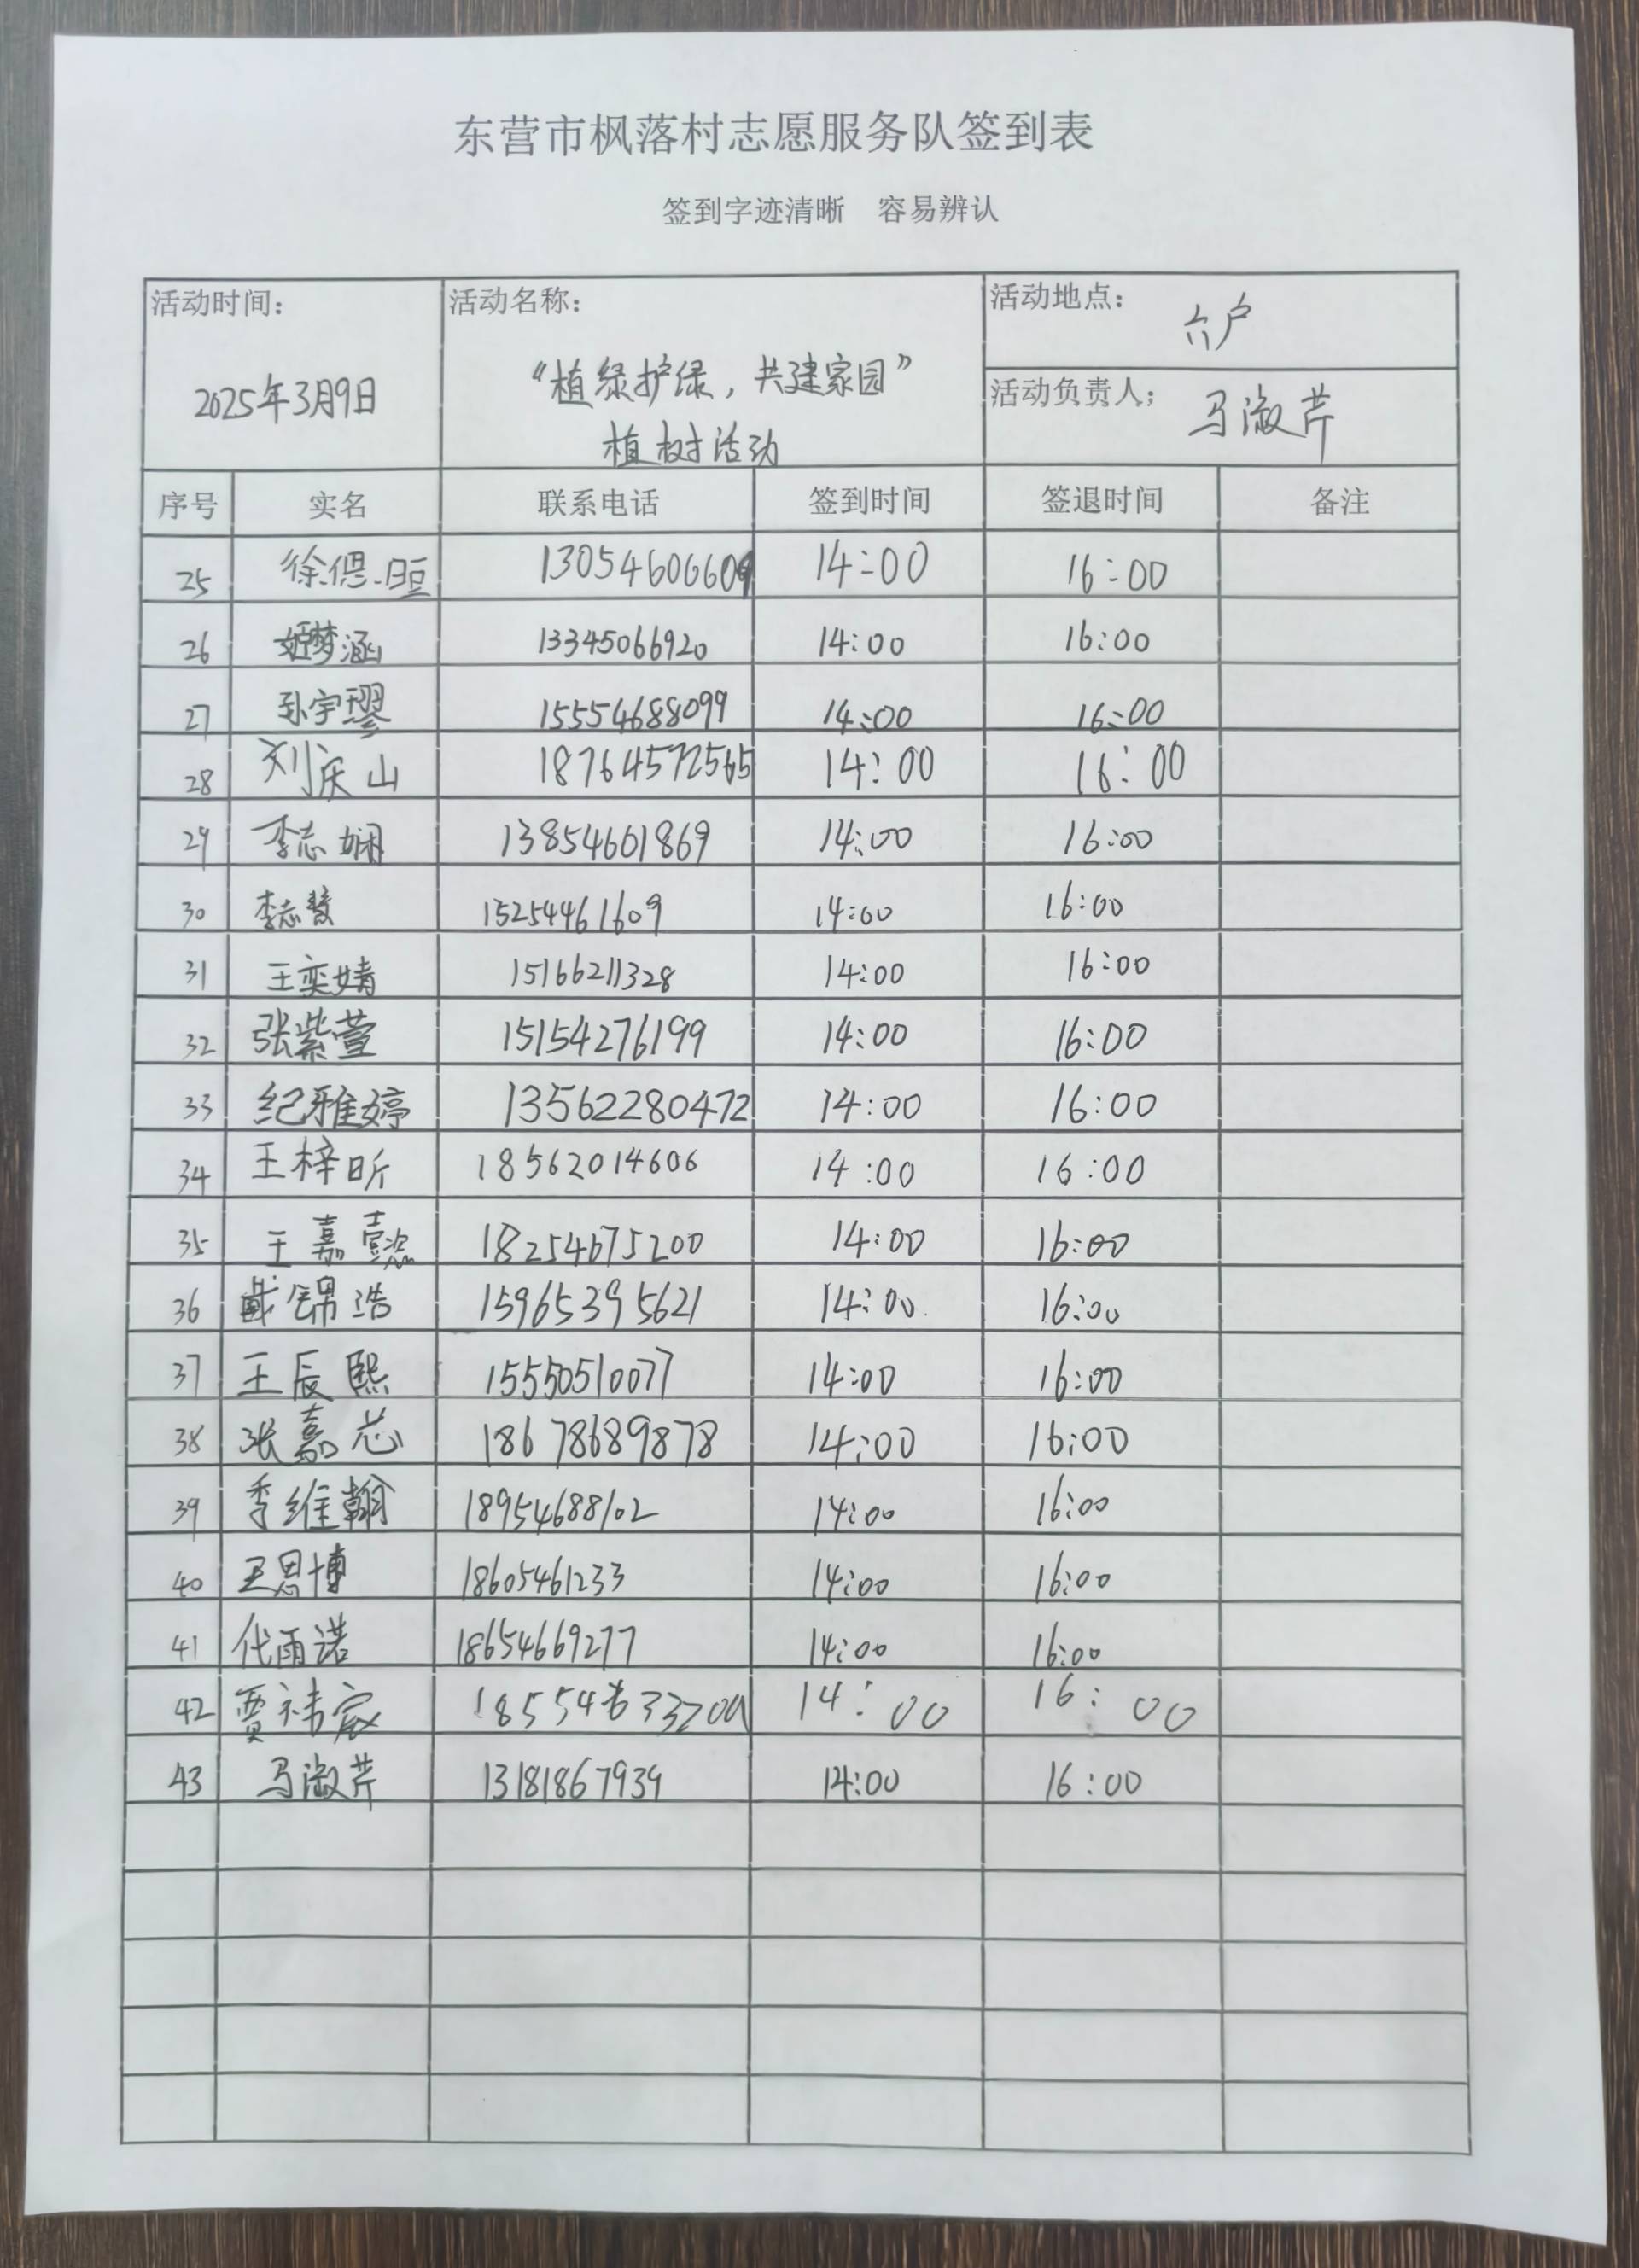 东营市枫落村志愿服务队签到表
签到字迹清晰 容易辨认
活动时间： 活动名称： 活动地点： 六户
2025年3月9日 “植绿护绿，共建家园” 活动负责人； 马淑芹
植树活动
序号 实名 联系电话 签到时间 签退时间 备注
25 徐偲垣 13054606609 14:00 16:00
26 姬梦涵 13345066920 14:00 16:00
27 孙宇璆 15554688099 14:00 16:00
28 刘庆山 18764572565 14:00 16:00
29 李志娴 13854601869 14:00 16:00
30 李志慧 15254461609 14:00 16:00
31 王奕婧 15166211328 14:00 16:00
32 张紫萱 15154276199 14:00 16:00
33 纪雅婷 13562280472 14:00 16:00
34 王梓昕 18562014606 14:00 16:00
35 王嘉懿 18254675200 14:00 16:00
36 戴锦浩 15965395621 14:00 16:00
37 王辰熙 15550510077 14:00 16:00
38 张嘉芯 18678689878 14:00 16:00
39 季维翰 18954688102 14:00 16:00
40 王思博 18605461233 14:00 16:00
41 代雨诺 18654669277 14:00 16:00
42 贾祎宸 14:00 16:00
43 马淑芹 13181867939 14:00 16:00